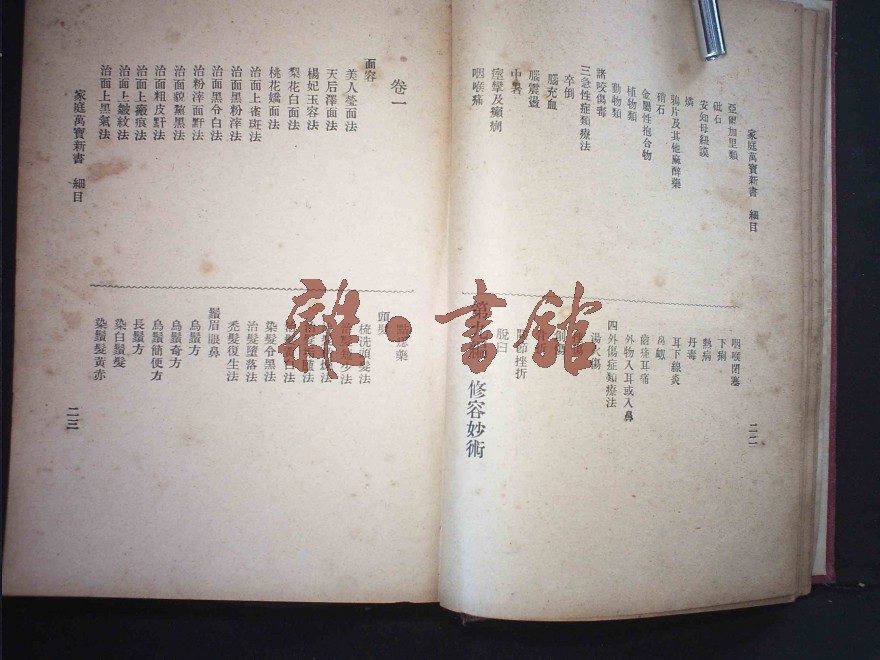 家庭萬寶新書　細目
亞爾加里類
砒石
安知母紐謨
燐
鴉片及其他麻醉藥
硝石
金屬性抱合物
植物類
動物類
諸咬傷毒
三急性症類療法
卒倒
腦充血
腦震盪
中暑
痙攣及癲癇
咽喉痛
咽喉閉塞
下痢
熱病
丹毒
耳下線炎
鼻衂
齒痛耳痛
外物入耳或入鼻
四外傷症類療法
湯火傷
挫折
脫臼
修容妙術
二二
卷一
面容
美人瑩面法
天后澤面法
楊妃玉容法
梨花白面法
桃花嬌面法
治面上雀斑法
治面黑粉滓法
治面黑令白法
治粉滓面䵟法
治面䫉黧黑法
治面粗皮䵟法
治面上瘢痕法
治面上皺紋法
治面上黑氣法
家庭萬寶新書　細目
藥
頭髮
梳洗頭髮法
染髮令黑法
治髮墮落法
禿髮復生法
鬚眉眼鼻
烏鬚方
烏鬚奇方
烏鬚簡便方
長鬚方
染白鬚髮
染鬚髮黃赤
二三
雜·書館